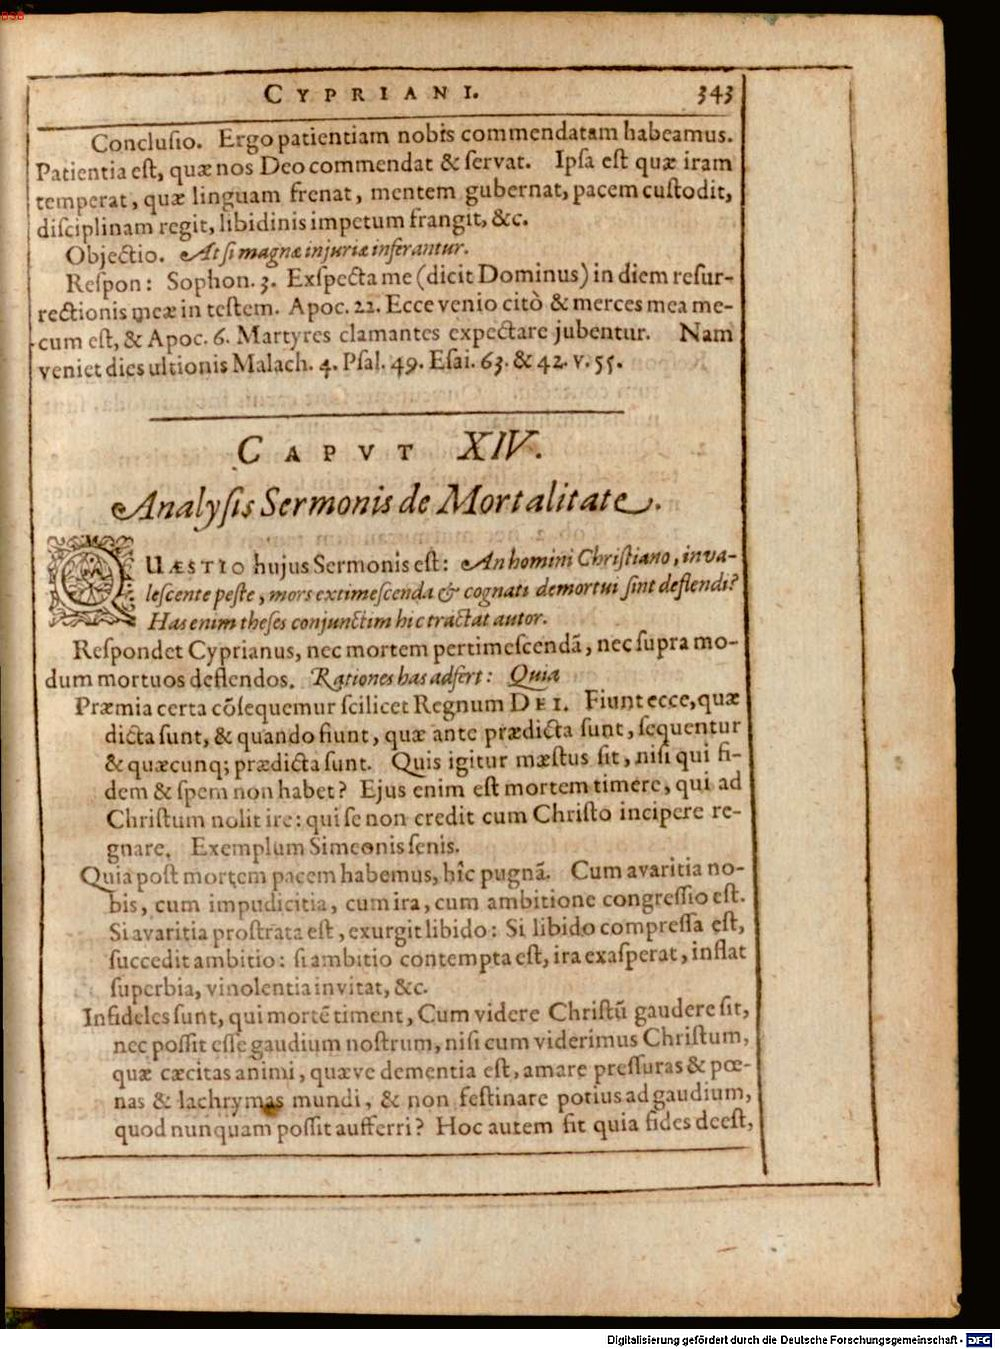 BSB
CYPRIANI. 343
Conclusio. Ergo patientiam nobis commendatam habeamus.
Patientia est, quæ nos Deo commendat & servat. Ipsa est quæ iram
temperat, quæ linguam frenat, mentem gubernat, pacem custodit,
disciplinam regit, libidinis impetum frangit, &c.
Objectio. At si magnæ injuriæ inferantur.
Respon: Sophon. 3. Exspecta me (dicit Dominus) in diem resur-
rectionis meæ in testem. Apoc. 22. Ecce venio citò & merces mea me-
cum est, & Apoc. 6. Martyres clamantes expectare jubentur. Nam
veniet dies ultionis Malach. 4. Psal. 49. Esai. 63. & 42. v. 55.
CAPVT XIV.
Analysis Sermonis de Mortalitate.
QUÆSTIO hujus Sermonis est: An homini Christiano, inva-
lescente peste, mors extimescenda & cognati demortui sint deflendi?
Has enim theses conjunctim hic tractat autor.
Respondet Cyprianus, nec mortem pertimescendã, nec supra mo-
dum mortuos deflendos. Rationes has adfert: Quia
Præmia certa cõsequemur scilicet Regnum DEI. Fiunt ecce, quæ
dicta sunt, & quando fiunt, quæ ante prædicta sunt, sequentur
& quæcunq; prædicta sunt. Quis igitur mæstus sit, nisi qui fi-
dem & spem non habet? Ejus enim est mortem timere, qui ad
Christum nolit ire: qui se non credit cum Christo incipere re-
gnare. Exemplum Simeonis senis.
Quia post mortem pacem habemus, hîc pugnã. Cum avaritia no-
bis, cum impudicitia, cum ira, cum ambitione congressio est.
Si avaritia prostrata est, exurgit libido: Si libido compressa est,
succedit ambitio: si ambitio contempta est, ira exasperat, inflat
superbia, vinolentia invitat, &c.
Infideles sunt, qui mortẽ timent, Cum videre Christũ gaudere sit,
nec possit esse gaudium nostrum, nisi cum viderimus Christum,
quæ cæcitas animi, quæve dementia est, amare pressuras & pœ-
nas & lachrymas mundi, & non festinare potius ad gaudium,
quod nunquam possit aufferri? Hoc autem fit quia fides deest,
Digitalisierung gefördert durch die Deutsche Forschungsgemeinschaft - DFG